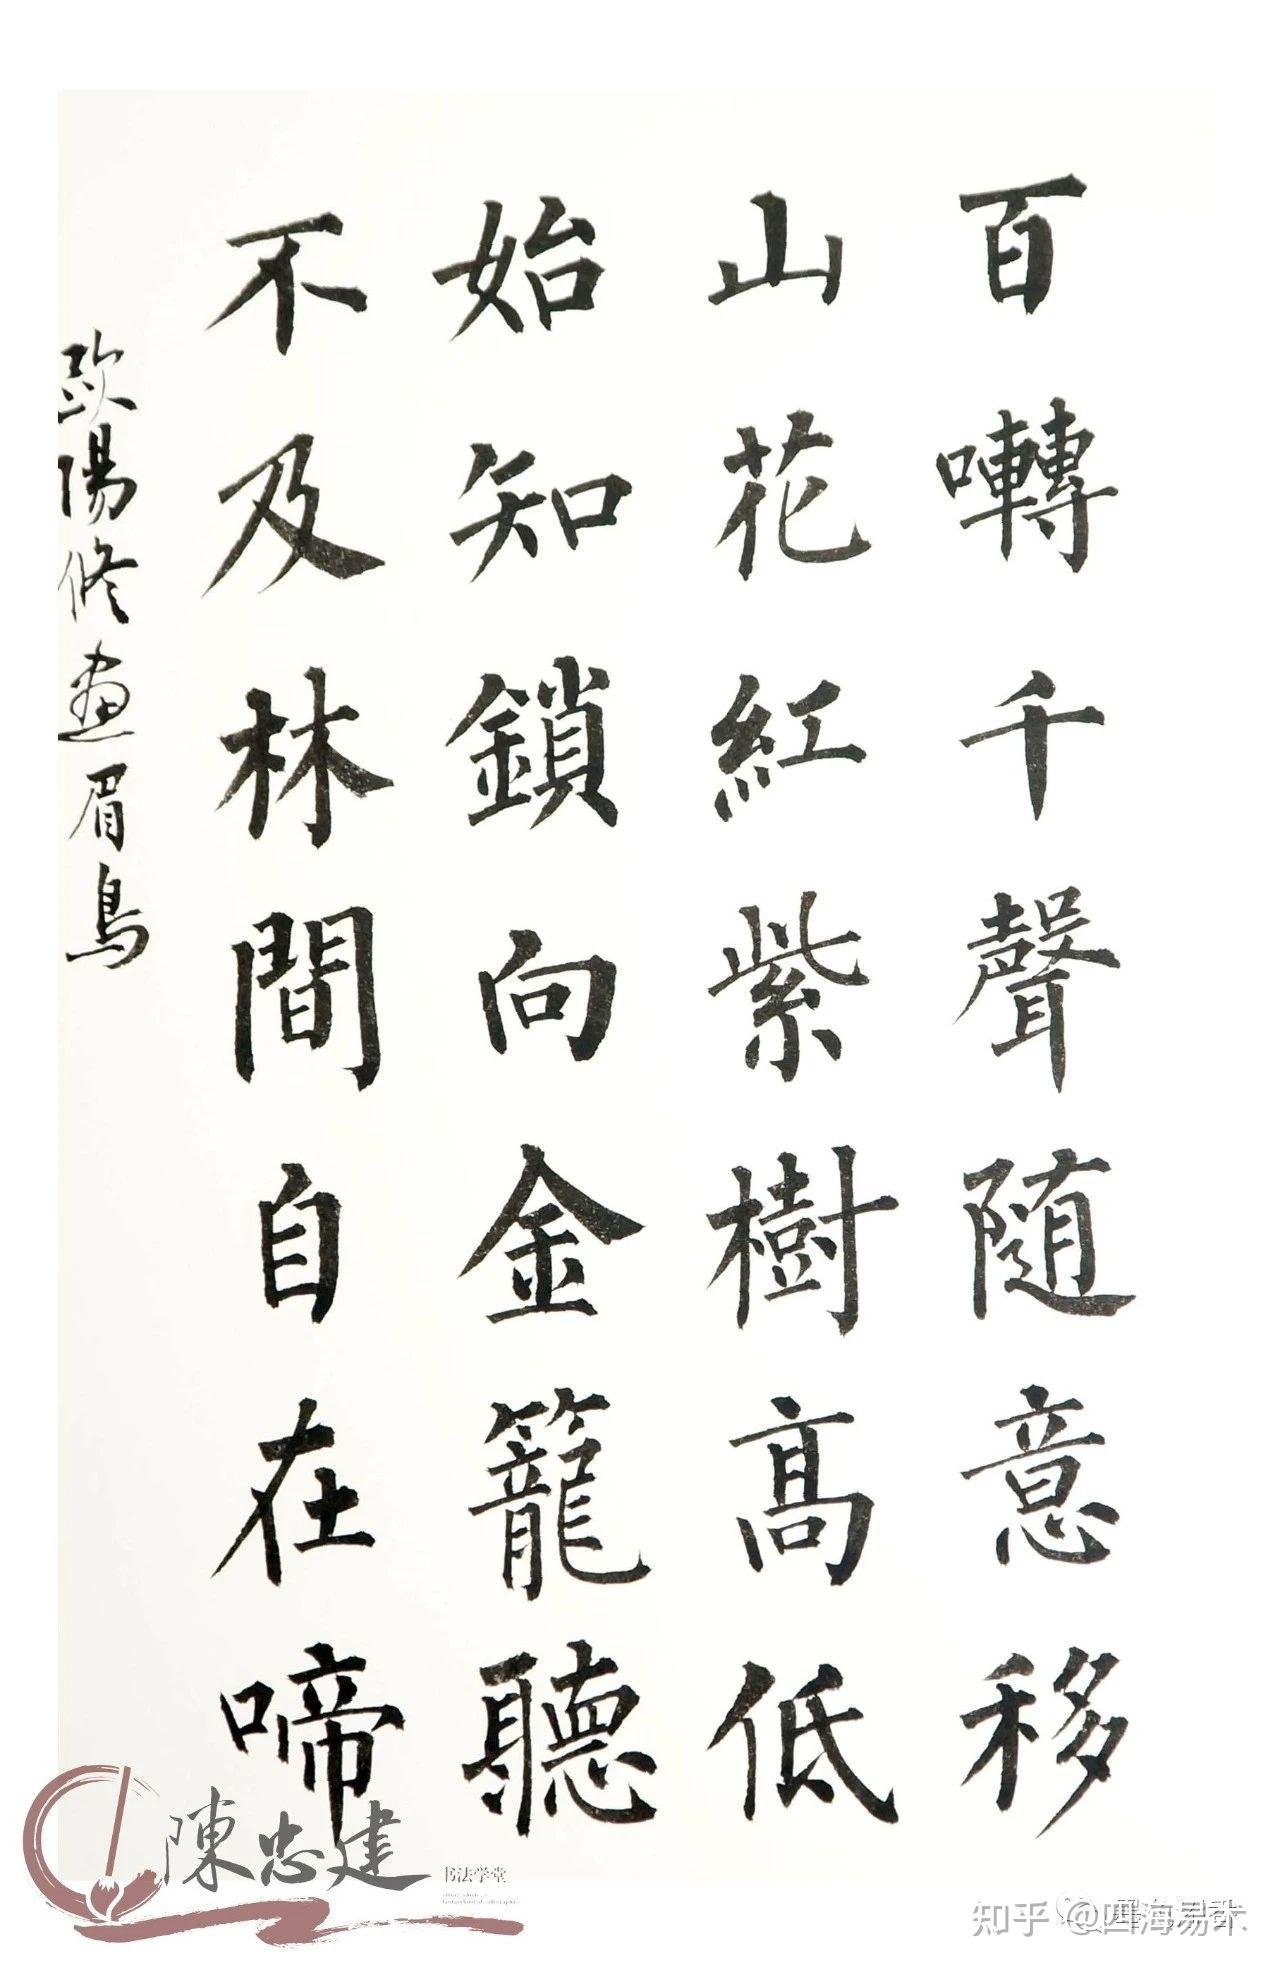 百囀千聲随意移
山花紅紫樹髙低
始知鎖向金籠聽
不及林間自在啼
欧陽修畫眉鳥
陳忠建
书法学堂
知乎 @四海易木